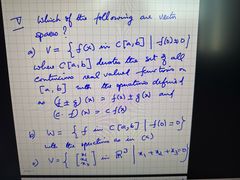 V Which of the following are vector
spaces?
a) V = { f(x) in C[a,b] | f(0) = 0 }
where C[a,b] denotes the set of all
continuous real valued functions on
[a,b] with the operations defined
as (f ± g)(x) = f(x) ± g(x) and
(c·f)(x) = c f(x)
b) W = { f in C[a,b] | f(0) = 0 }
with the operations as in (a)
c) V = { [x₁ x₂ x₃] in ℝ³ | x₁ + x₂ + x₃ = 0 }